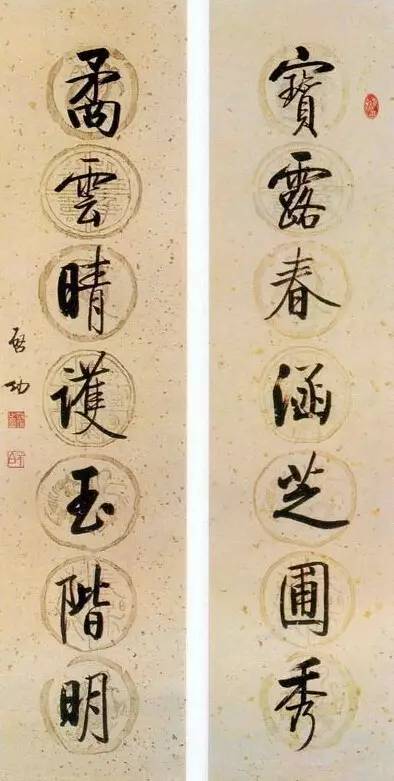 寶露春涵芝圃秀
矞雲晴護玉階明
启功